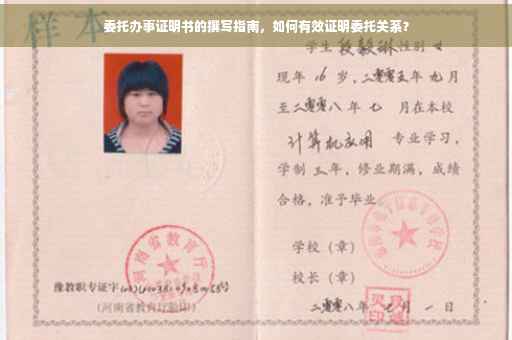 委托办事证明书的撰写指南，如何有效证明委托关系？
样本
学生段毅琳性别女
现年16岁，二零零五年九月
至二零零八年七月在本校
计算机应用 专业学习，
学制三年，修业期满，成绩
合格，准予毕业。
学校（章）
校长（章）
二零零八年七月一日
河南省教育厅
豫教职专证字
（河南省教育厅验印）